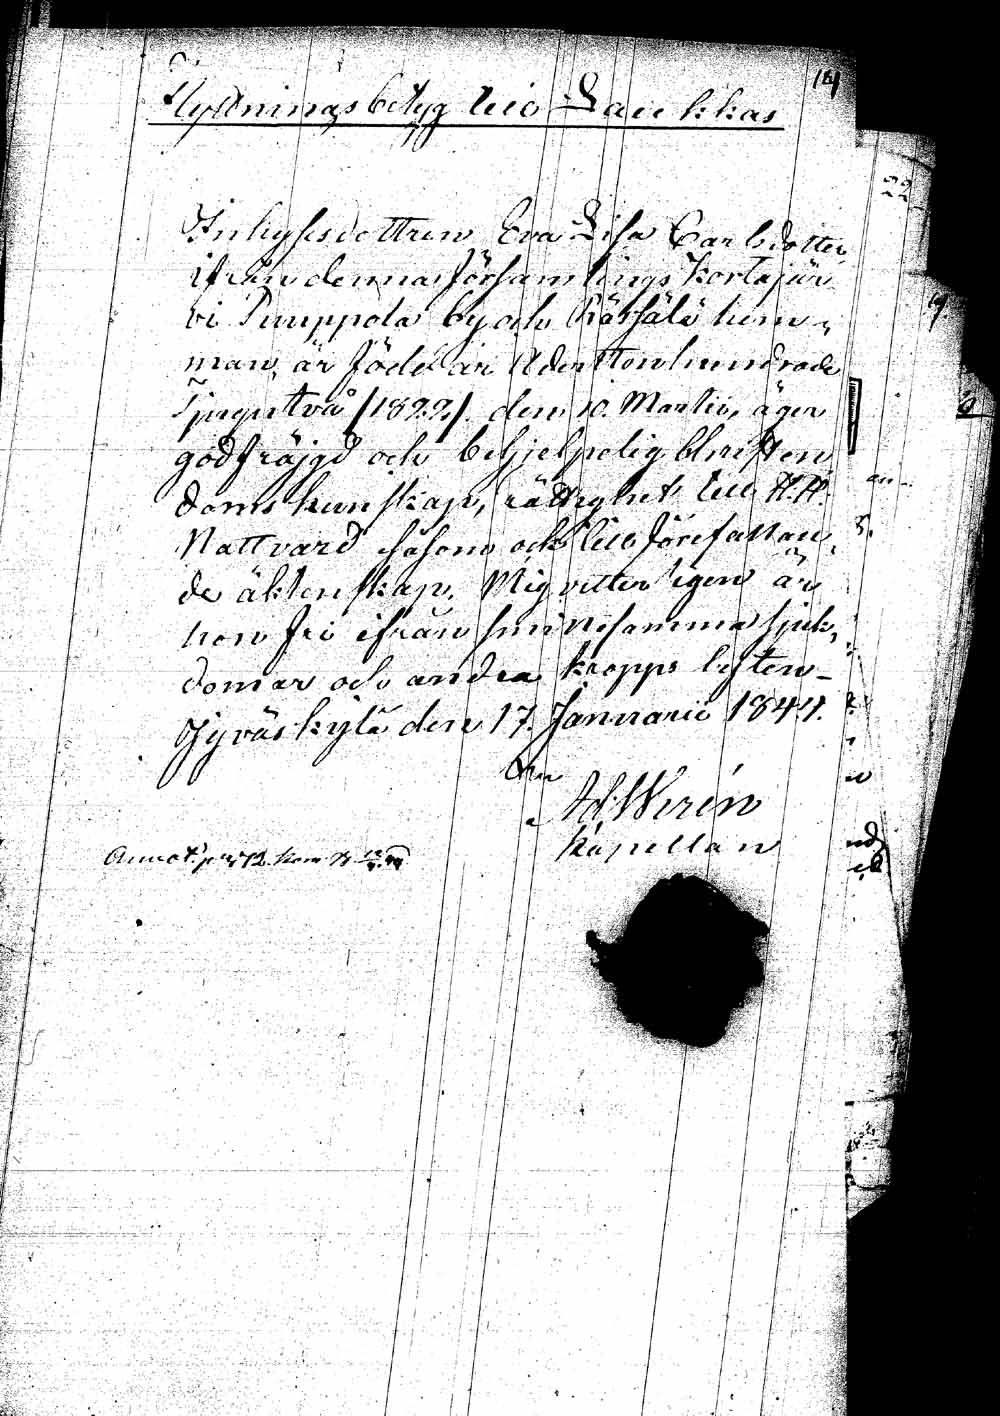 14
Flyttningsbetyg till Laukkas
Inhysesdottren Eva Lisa Carlsdotter,
ifrån denna församlings Kortajär
vi Puuppola by och Räihälä hem-
man, är född år Adertonhundrade
Tjugutvå /1822/. den 10. Martii, äger
god fräjgd och behjelpelig Christen
doms kunskap, rättighet till H.H.
Nattvard såsom och till förefallan
de äktenskap. Mig vetterligen är
hon fri ifrån smittosamma sjuk-
domar och andra kropps lyten_
Jyväskylä den 17. Januarii 1844.
Ad. Wirén
Kapellan
22
19.